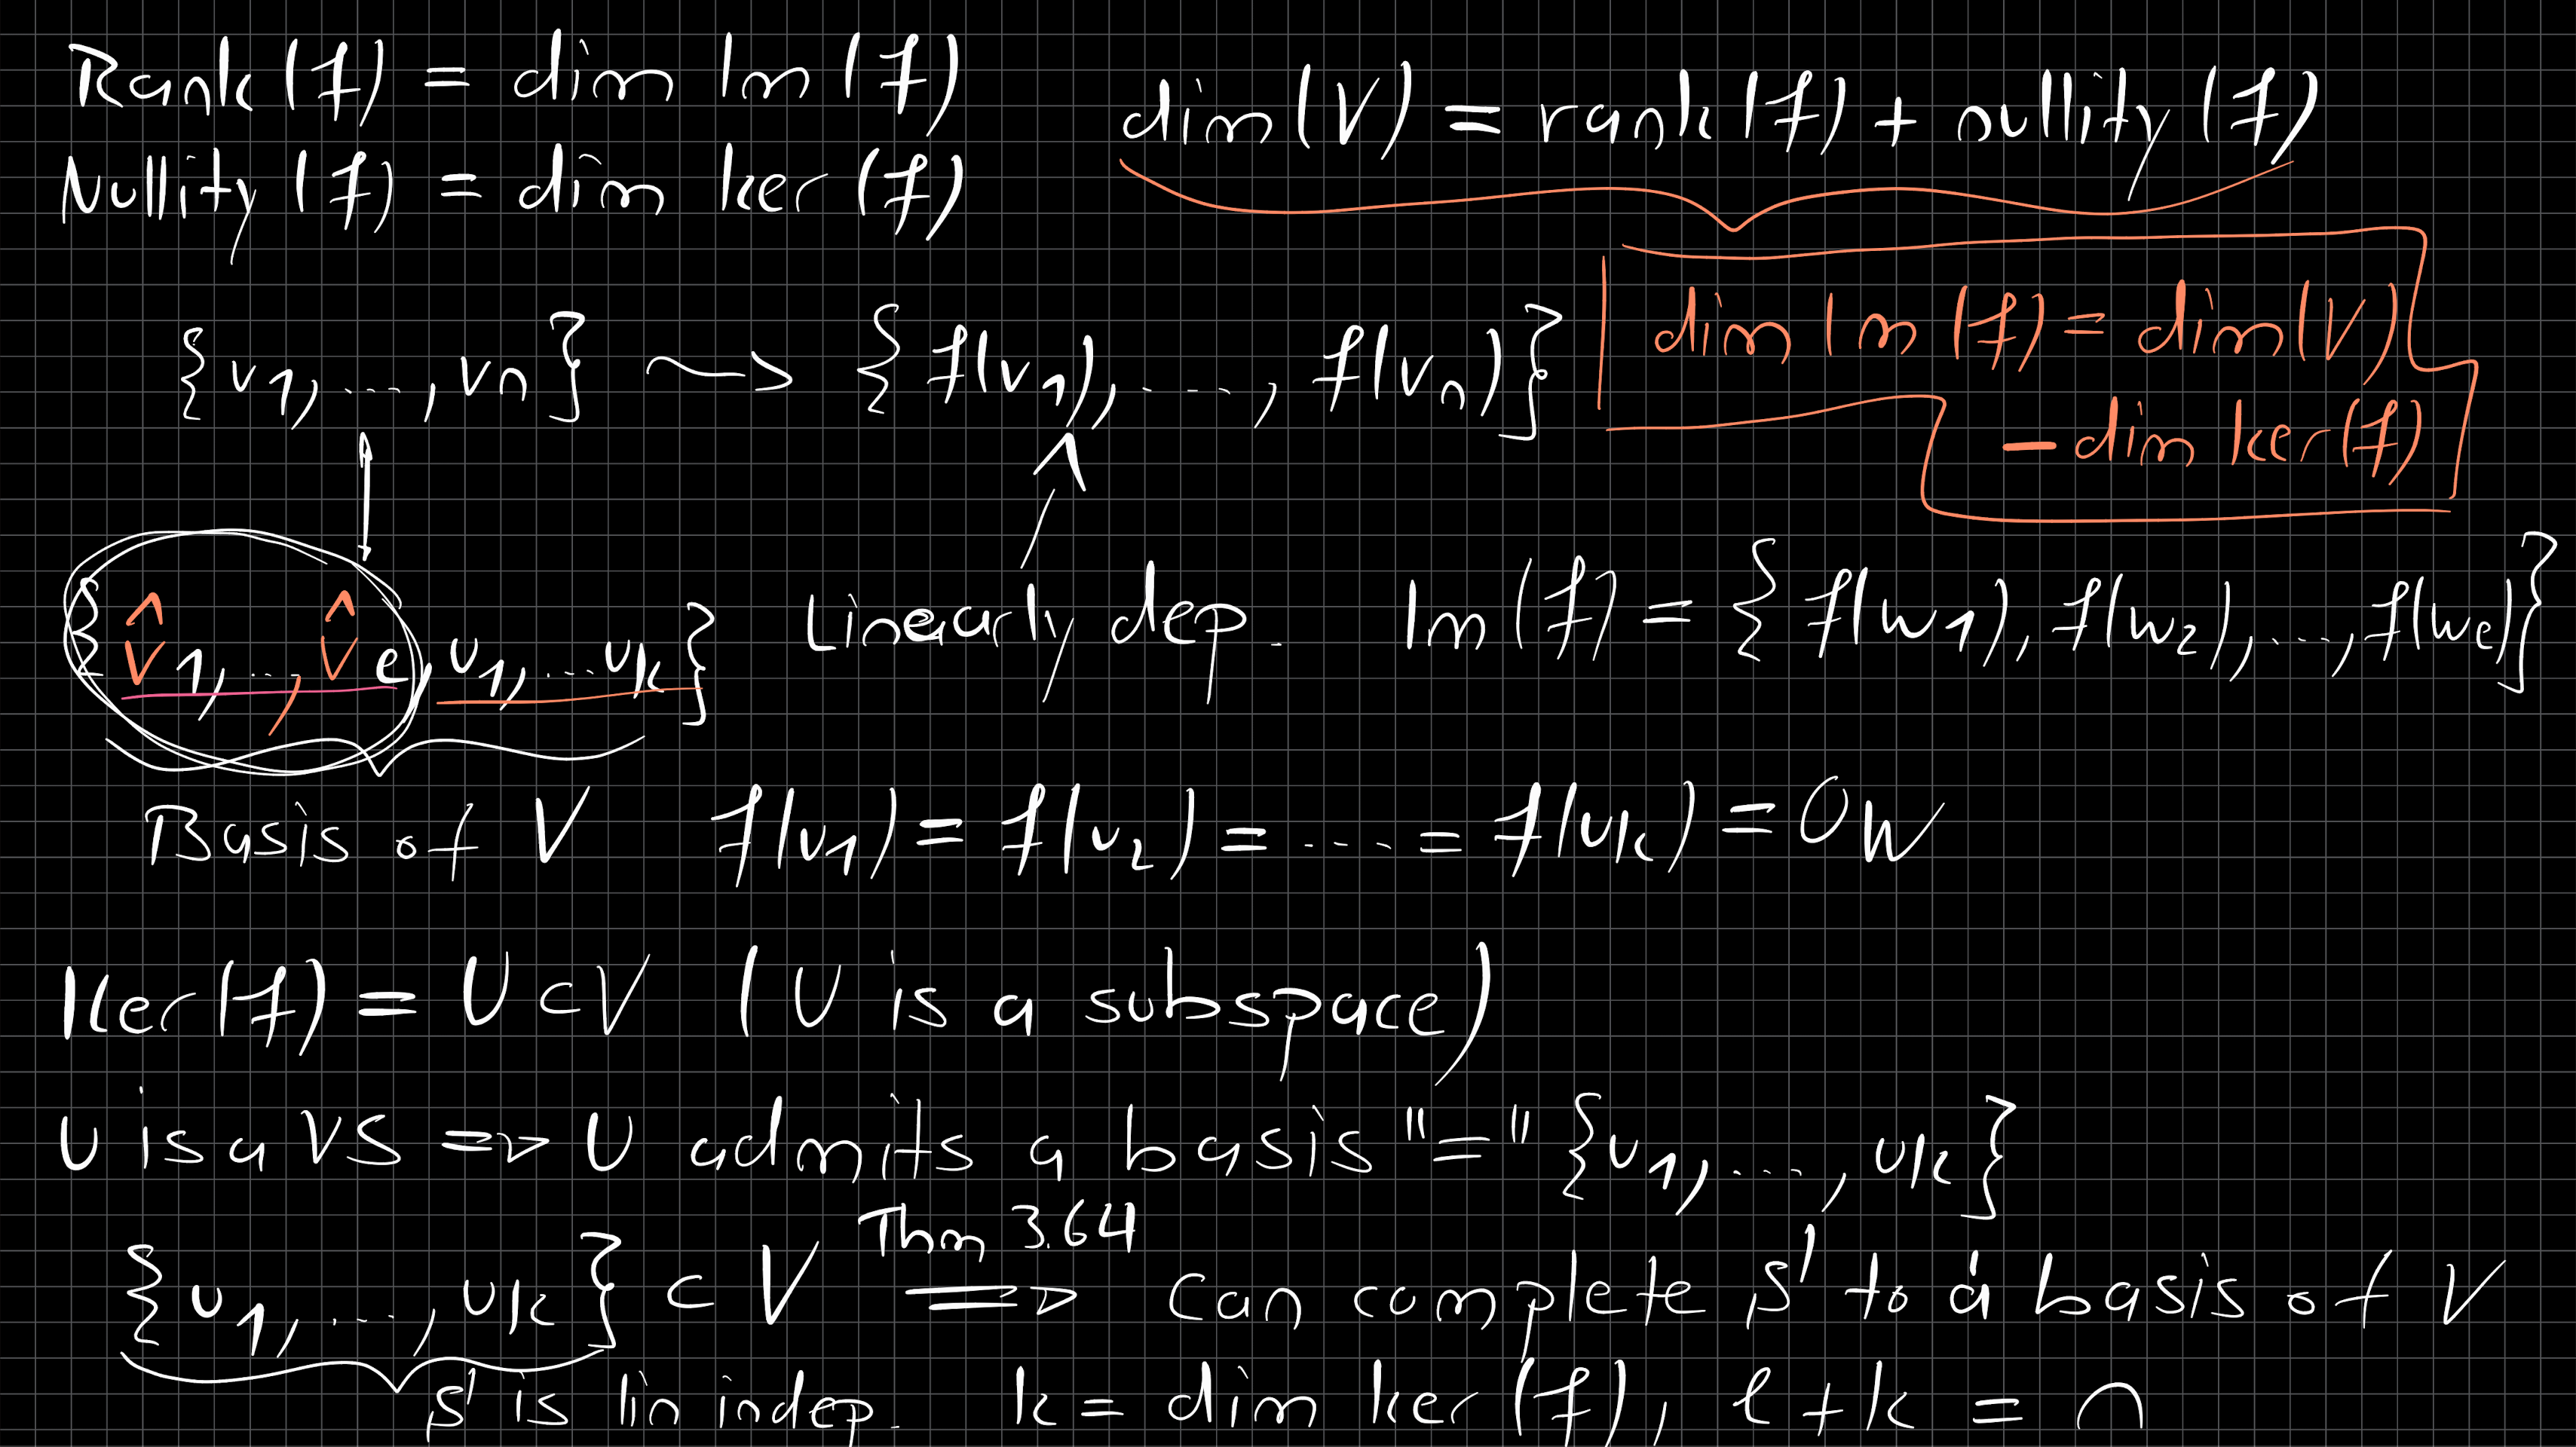 Rank(f) = dim Im(f)
Nullity(f) = dim ker(f)
dim(V) = rank(f) + nullity(f)
dim Im(f) = dim(V)
- dim ker(f)
{v1, ..., vn} ~> {f(v1), ..., f(vn)}
{v̂1, .., v̂e, u1, ... uk} Linearly dep. Im(f) = {f(w1), f(w2), ..., f(we)}
Basis of V f(u1) = f(u2) = ... = f(uk) = 0w
Ker(f) = U ⊂ V (U is a subspace)
U is a VS => U admits a basis "=" {u1, ..., uk}
Thm 3.64
{u1, ..., uk} ⊂ V => Can complete S' to a basis of V
S' is lin indep. k = dim ker(f), ℓ + k = n